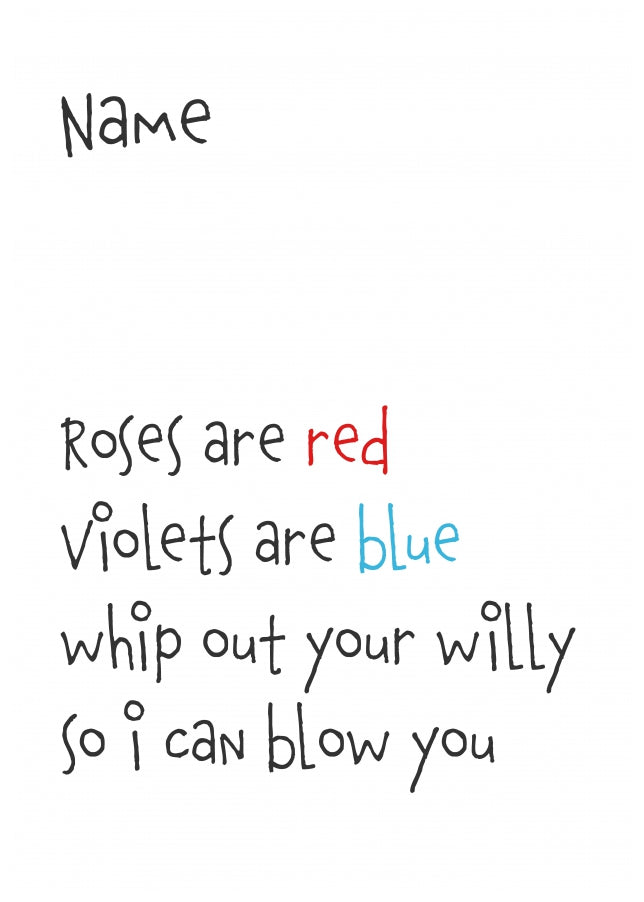 Name
Roses are red
Violets are blue
whip out your willy
so i can blow you